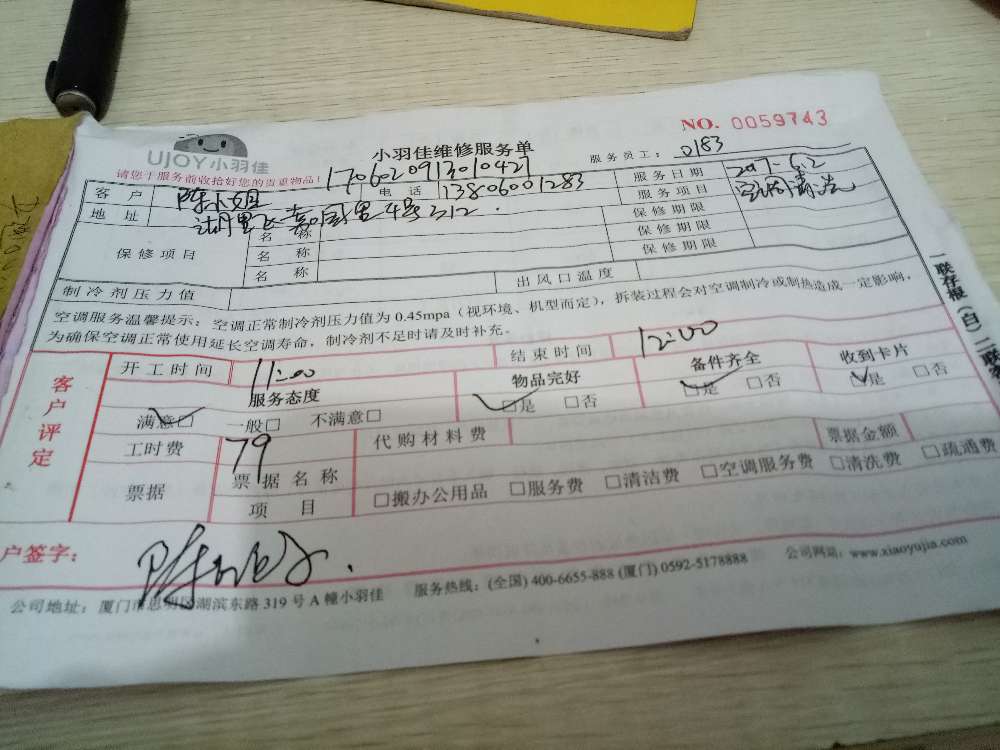 NO. 0059743
UJOY小羽佳
小羽佳维修服务单
服务员工: 0183
请您于服务前收拾好您的贵重物品!
1706020913010427
客户 陈小姐 电话 13806001283 服务日期 2017-6.2
地址 嘉园里4号312. 服务项目 空调清洗
保修项目 名称 保修期限
名称 保修期限
名称 保修期限
制冷剂压力值 出风口温度
空调服务温馨提示:空调正常制冷剂压力值为 0.45mpa(视环境、机型而定),拆装过程会对空调制冷或制热造成一定影响,
为确保空调正常使用延长空调寿命,制冷剂不足时请及时补充。
一联存根(白)二联客
客户评定
开工时间 11:00 结束时间 12:00
服务态度 物品完好 备件齐全 收到卡片
满意☑ 一般□ 不满意□ ☑是 □否 ☑是 □否 ☑是 □否
工时费 79 代购材料费 票据金额
票据 票据名称
项目 □搬办公用品 □服务费 □清洁费 □空调服务费 □清洗费 □疏通费
户签字:
公司地址:厦门市思明区湖滨东路 319 号 A 幢小羽佳 服务热线:(全国) 400-6655-888 (厦门) 0592-5178888 公司网站:www.xiaoyujia.com